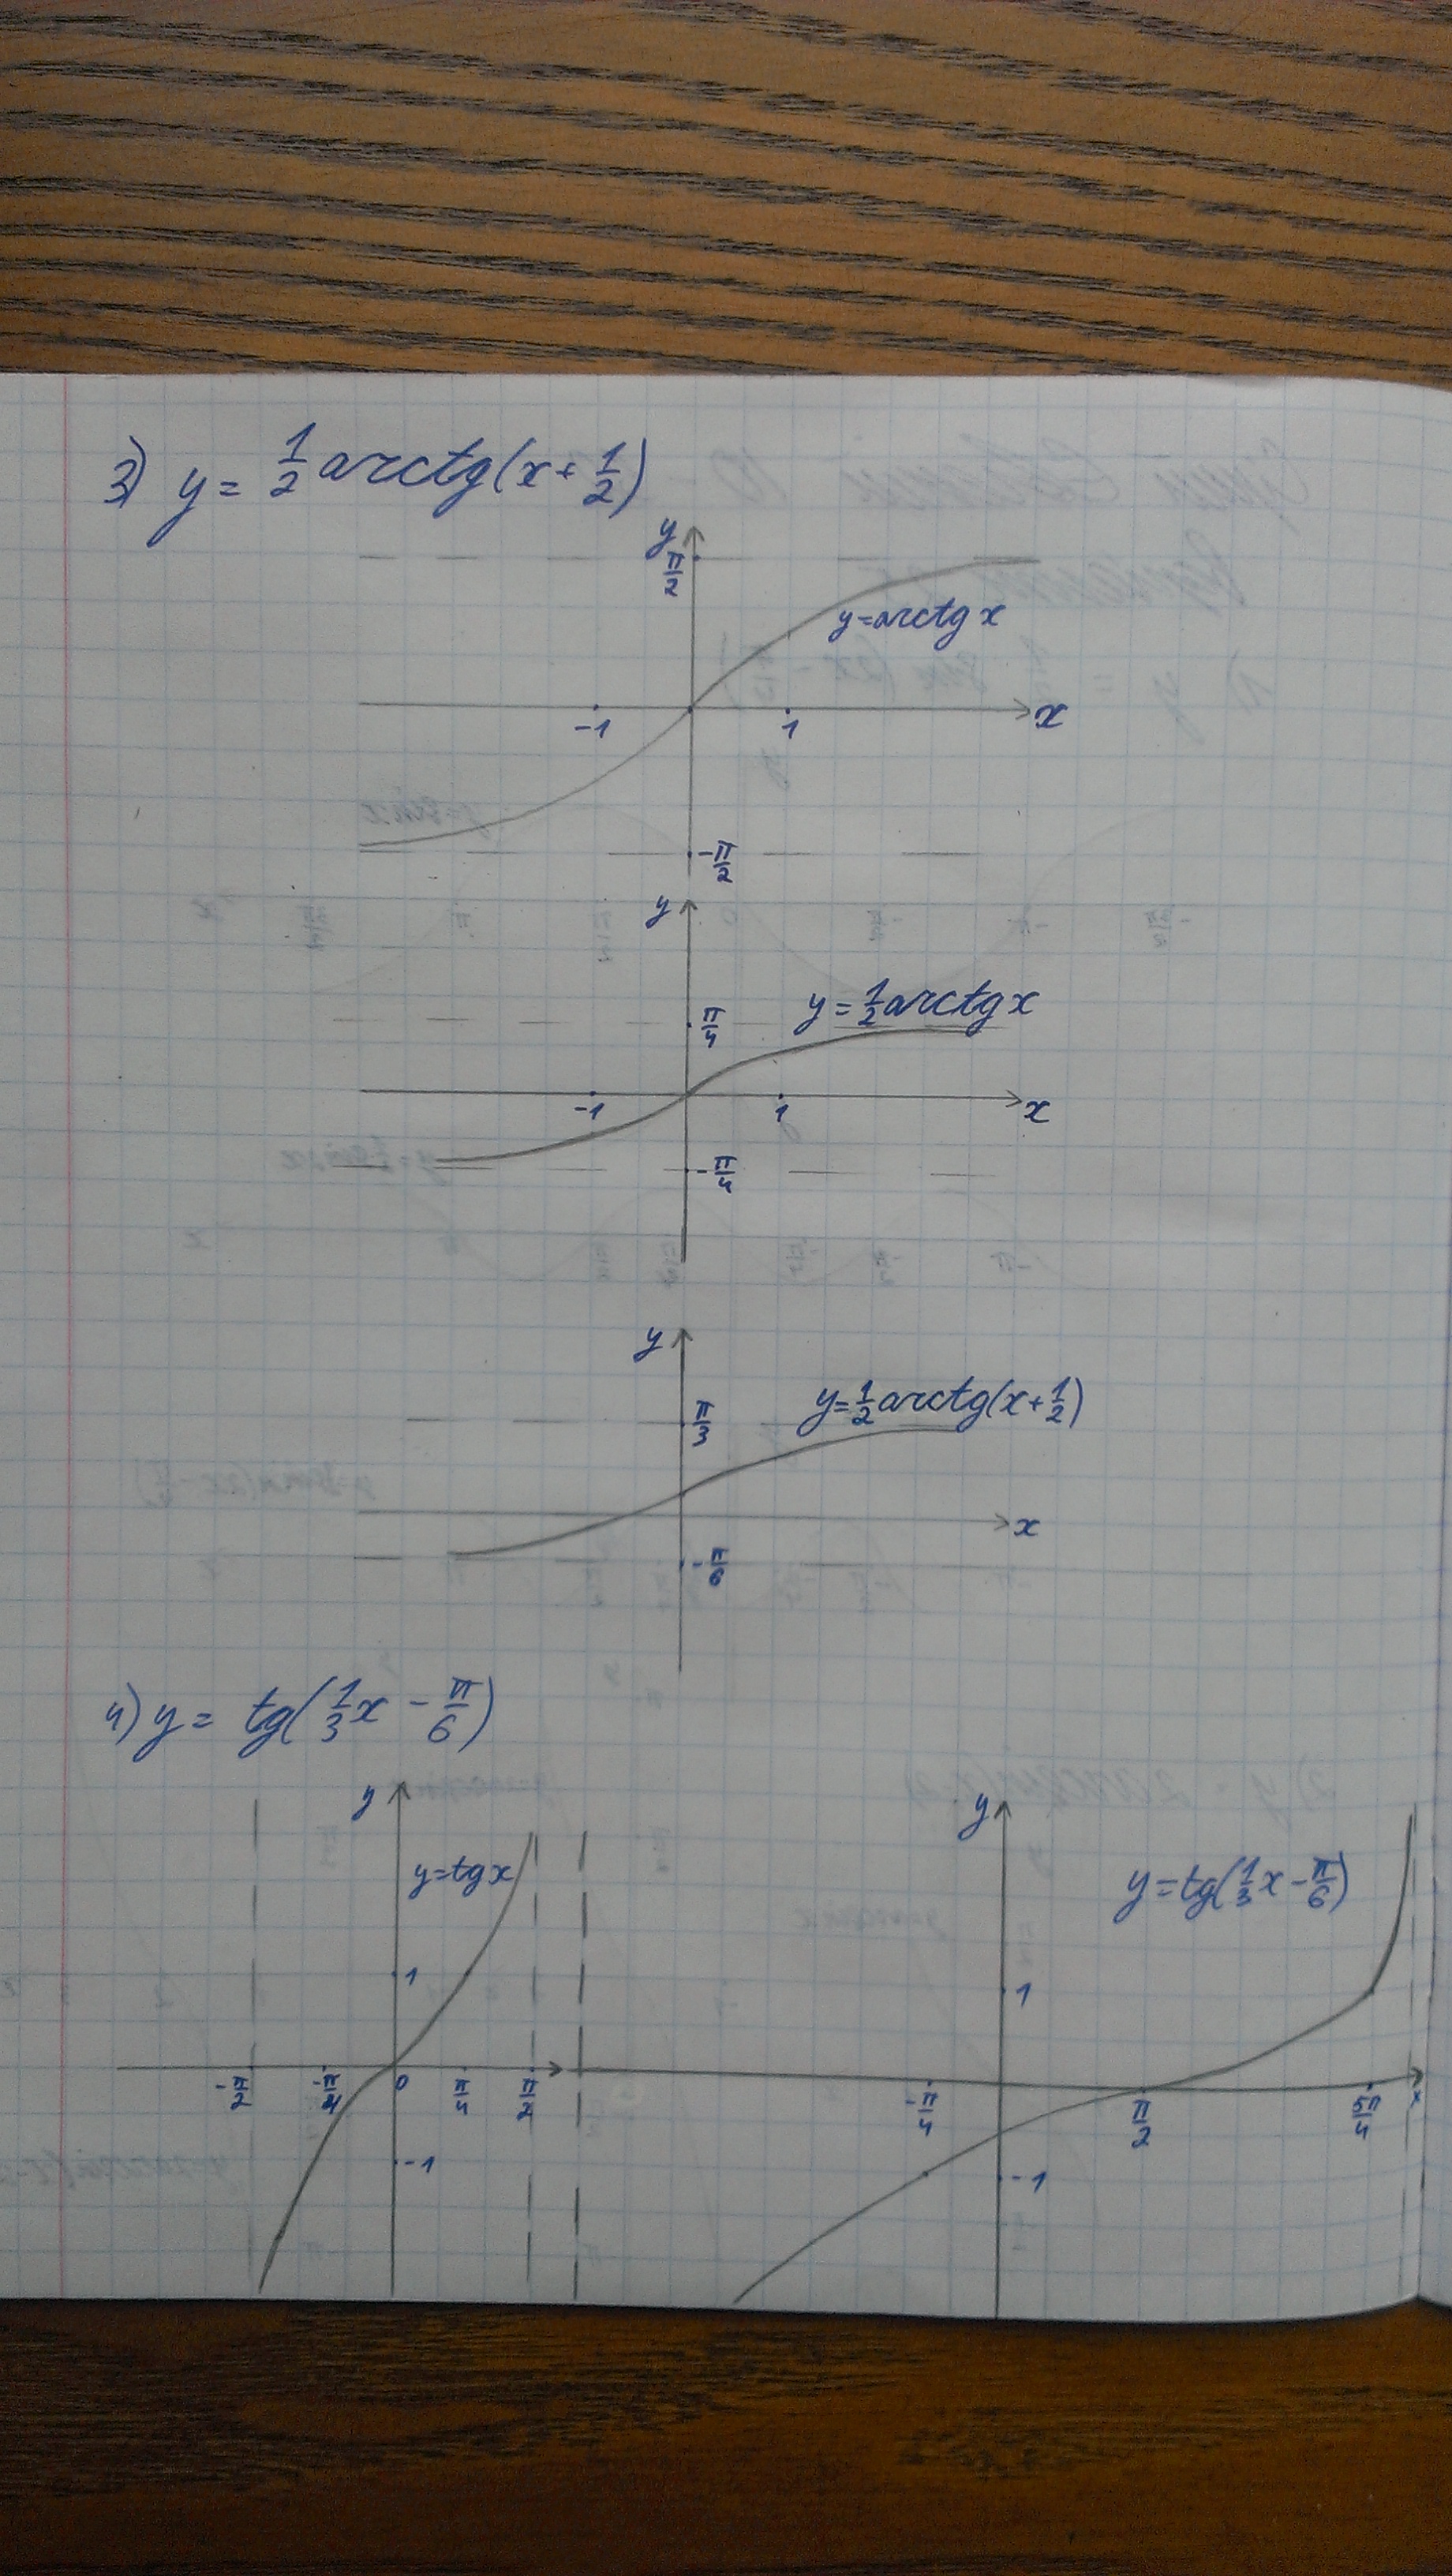 3) y = 1/2 arctg(x + 1/2)
y
π/2
y=arctg x
-1 1 x
-π/2
y
y = 1/2 arctg x
π/4
-1 1 x
-π/4
y
y=1/2 arctg(x+1/2)
π/3
x
-π/6
4) y = tg(1/3 x - π/6)
y
y=tg x
1
-π/2 -π/4 0 π/4 π/2
-1
y
y=tg(1/3 x - π/6)
1
-π/4 π/2 5π/4 x
-1